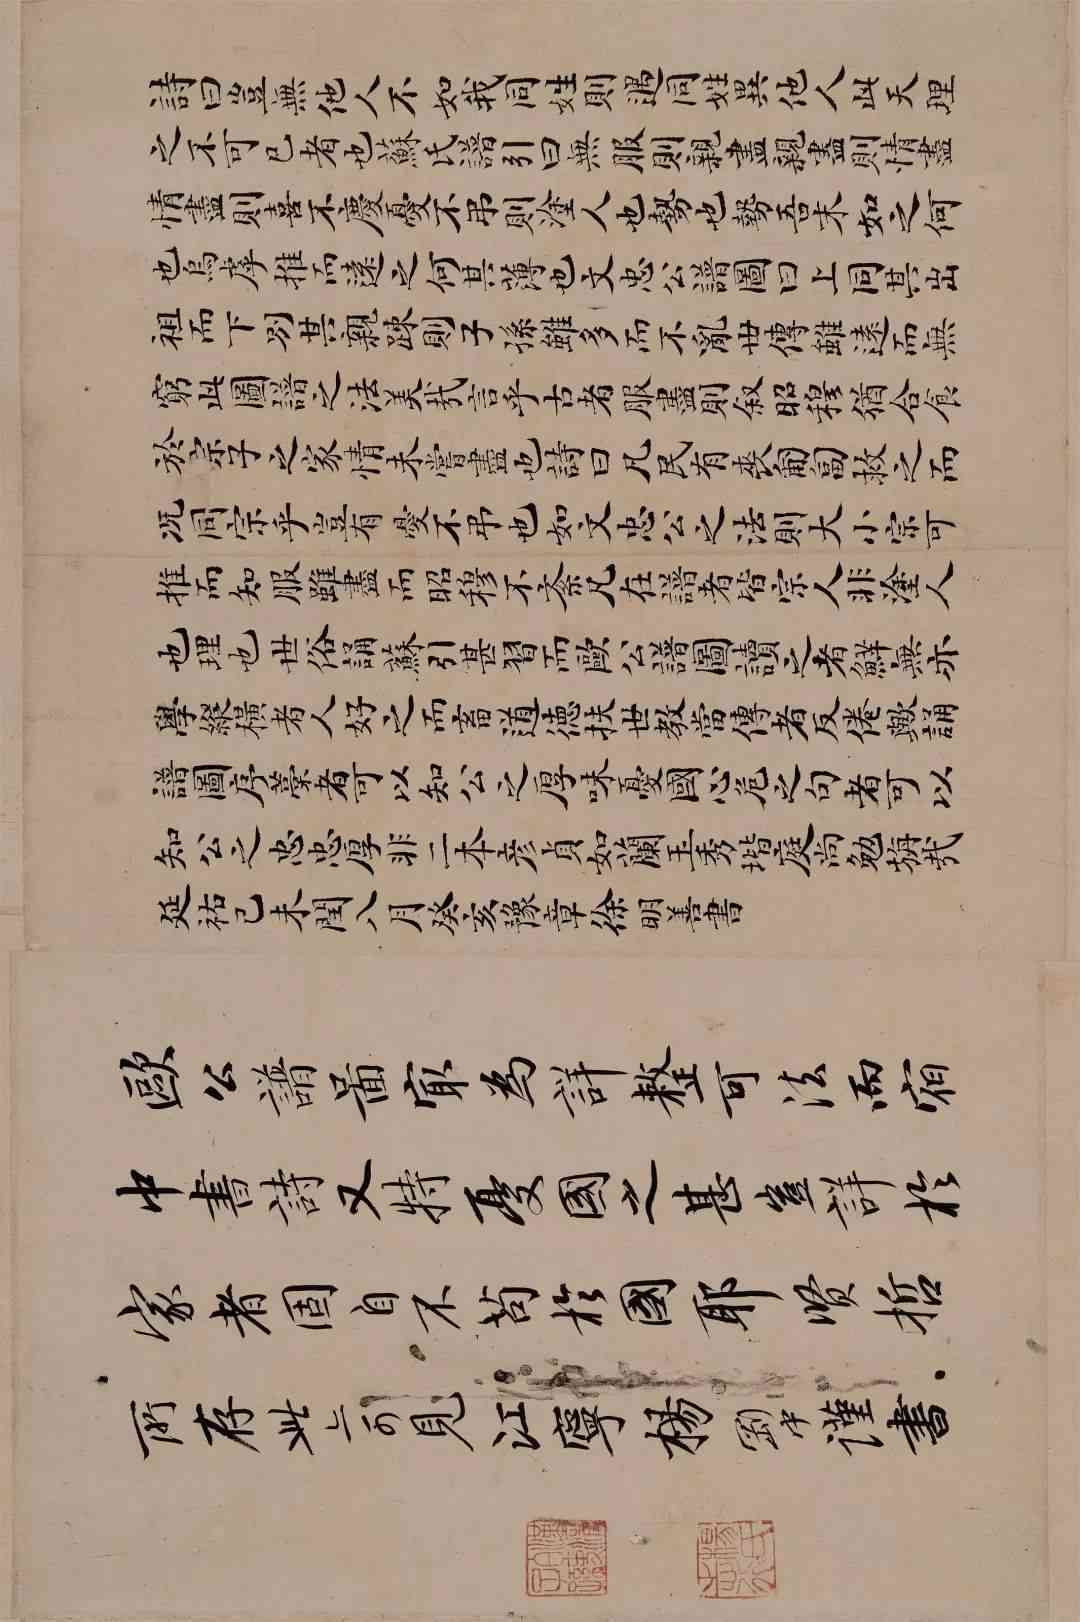 詩曰豈無他人不如我同姓則遇同姓異他人此天理
之不可已者也蘇氏譜引曰無服則親盡親盡則情盡
情盡則喜不慶憂不弔則塗人也勢也勢吾末如之何
也烏虖推而遠之何其薄也文忠公譜圖曰上同其出
祖而下別其親踈則子孫雖多而不亂世傳雖遠而無
窮此圖譜之法美哉言乎古者服盡則叙昭穆猶合食
於宗子之家情未嘗盡也詩曰凡民有喪匍匐救之而
况同宗乎豈有憂不弔也如文忠公之法則大小宗可
推而知服雖盡而昭穆不紊凡在譜者皆宗人非塗人
也理也世俗誦蘇引甚習而歐公譜圖讀之者鮮無亦
學縱橫者人好之而畜道德扶世教當傳者反倦歟誦
譜圖序藁者可以知公之厚味憂國心危之句者可以
知公之忠忠厚非二本彦貞如蘭玉秀堦庭尚勉旃哉
延祐己未閏八月癸亥豫章徐明善書
歐公譜啚冣為詳整可法而宿
中書詩又特憂國之甚豈詳於
家者固自不苟於國耶贤哲
所存此亦可見江寧楊剛中謹書